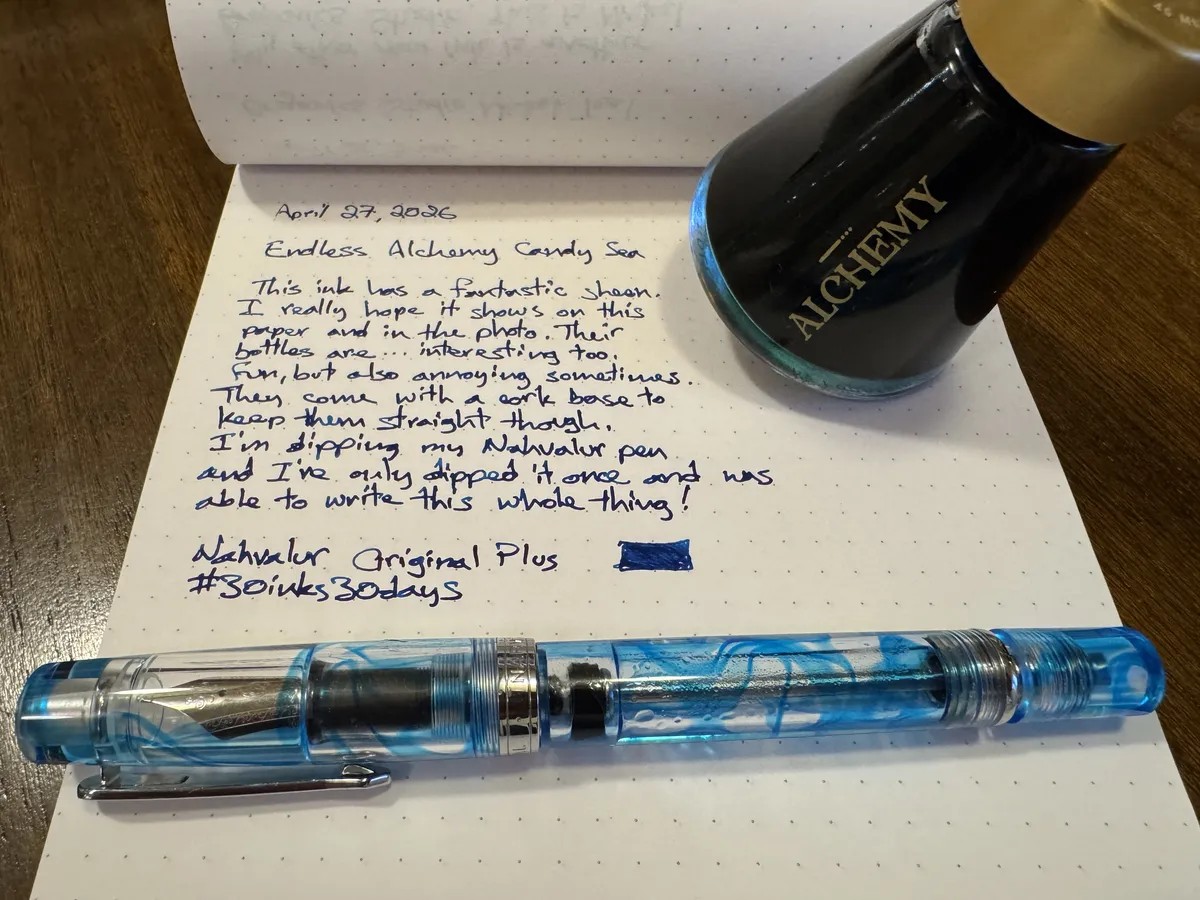 April 27, 2026
Endless Alchemy Candy Sea
This ink has a fantastic sheen.
I really hope it shows on this
paper and in the photo. Their
bottles are... interesting too.
Fun, but also annoying sometimes.
They come with a cork base to
keep them straight though.
I'm dipping my Nahvalur pen
and I've only dipped it once and was
able to write this whole thing!
Nahvalur Original Plus
#30inks30days
ALCHEMY